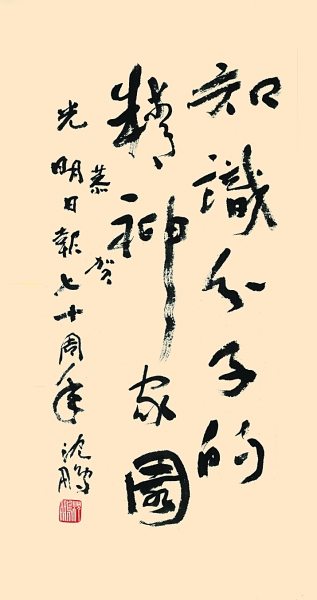 知識分子的
精神家園
恭賀
光明日報七十周年 沈鵬